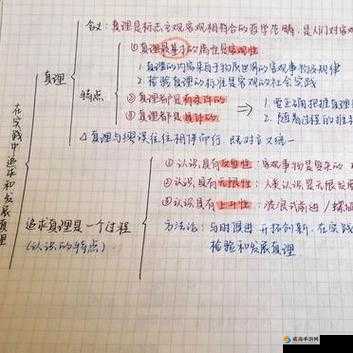 含义：真理是标志主观客观相符合的哲学范畴，是人们对客观
①真理最基本的属性是客观性
1.真理的内容来自于物质世界的客观事物及规律
2.检验真理的标准是客观的社会实践
真理
特点
②真理都是有条件的
③真理都是具体的
⇒
1.要正确把握真理
2.随着过程的推移
△真理与谬误往往相伴而行 既对立又统一
在实践中追求和发展真理
①认识具有反复性：客观事物是复杂的
②认识具有无限性：人类认识是无限发展
③认识具有上升性：波浪式前进
追求真理是一个过程
（认识的特点）
方法论：与时俱进 开拓创新，在实践
检验和发展真理